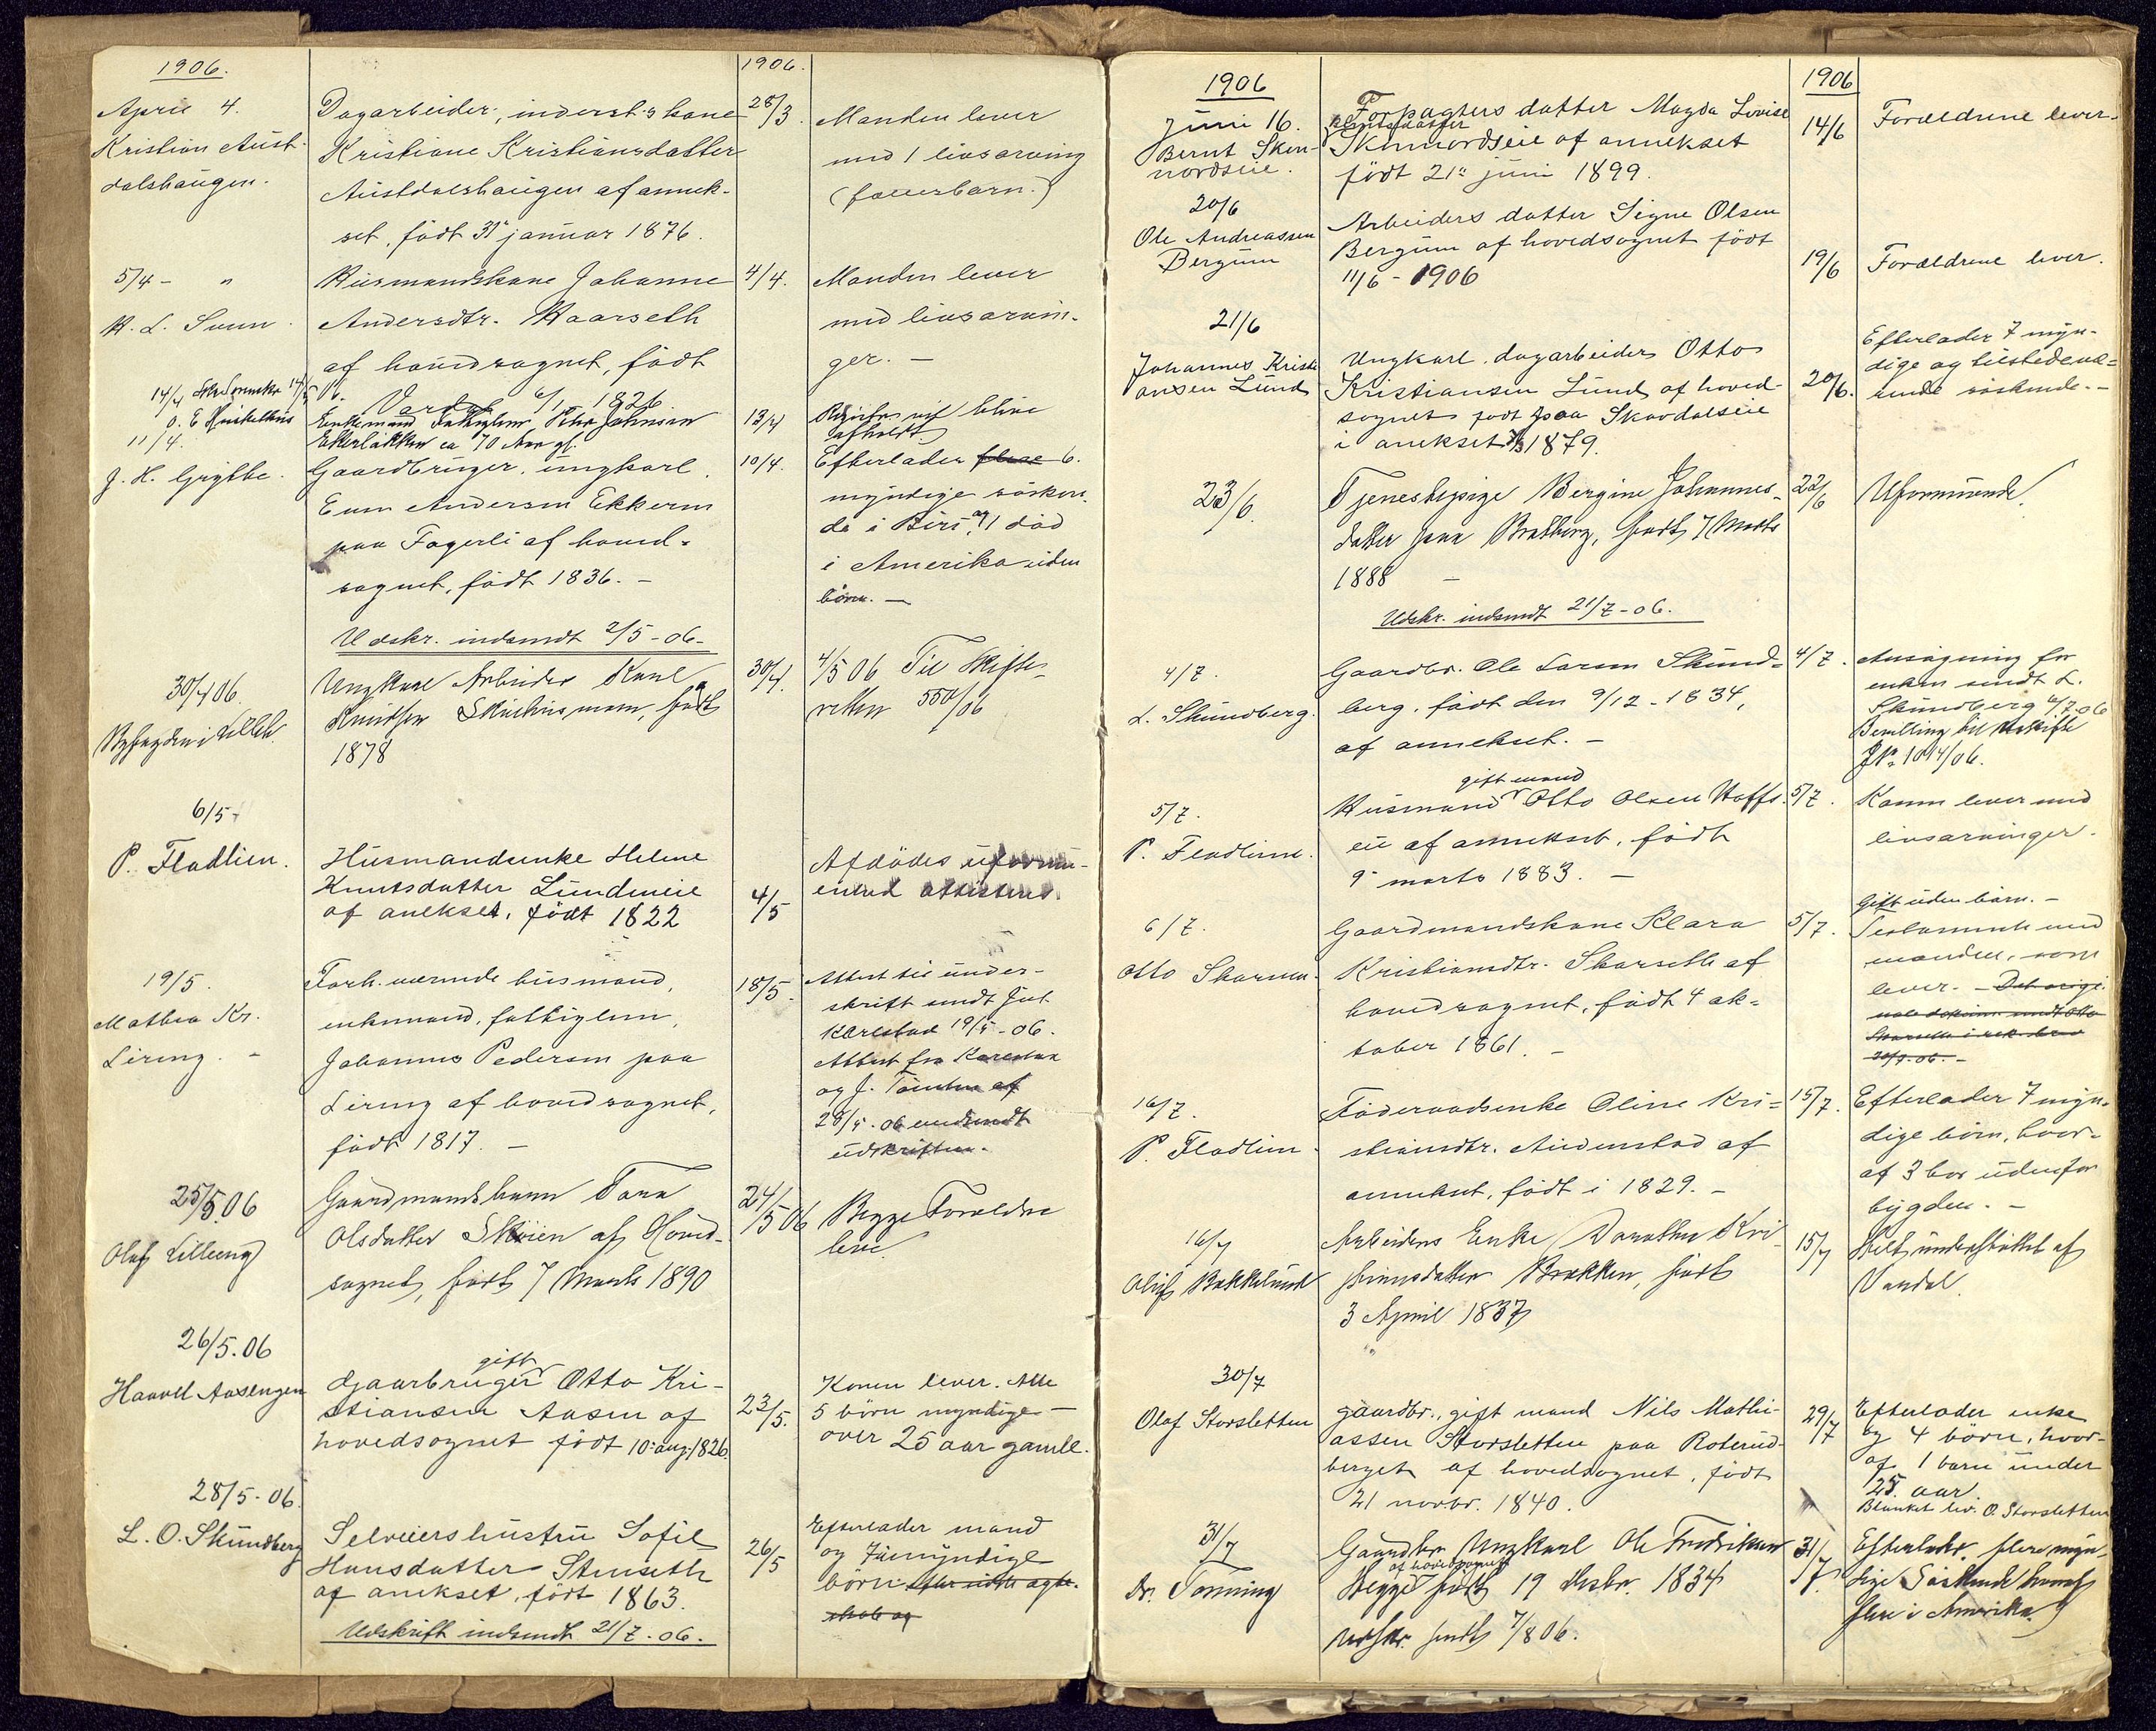 1906.
1906.
April 4.
Kristian Aust-
dalshaugen.
Dagarbeider, inderst's kone
Kristiane Kristiansdatter
Austdalshaugen af annek-
set, født 31 januar 1876.
28/3.
Manden lever
med 1 livsarving
(fællesbarn.)
5/4 - "
H. L. Svum.
Husmandskone Johanne
Andersdtr. Haarseth
af hovedsognet, født
1826
4/4.
Manden lever
med livsarvin-
ger. -
14/4
Enkemand Fattiglem Peder Johnsen
Ekerbakken ca 70 Aar gl.
13/4
blive
afholdt
11/4.
J. H. Grytbe.
Gaardbruger, ungkarl
Even Andersen Ekkern
paa Fagerli af hoved-
sognet, født 1836. -
10/4.
Efterlader flere 6.
myndige søsken-
de i Biri og 1 død
i Amerika uden
børn. -
Udskr. indsendt 2/5-06-
30/4 06.
Ungkarl Arbeider Karl
Knudsen født
1878
30/4.
4/5 06 Til Skifte-
retten 550/06
6/5 -
P. Fladlien.
Husmandsenke Helene
Knutsdatter Lundseie
af anekset, født 1822
4/5
Afdødes uformu-
enhed attisteret.
19/5.
Mathea Kr.
Liring. -
Forh. værende husmand,
enkemand, fattiglem,
Johannes Pedersen paa
Liring af hovedsognet,
født 1817. -
18/5.
Attest til under-
skrift sendt Gut.
Karlstad 19/5-06.
Attest fra Karlstad
og J. af
28/5.06 medsendt
udskriften.
25/5.06
Olaf Lilleeng
Gaardmandsbarn Tora
Olsdatter af Hoved-
sognet, født 7 Marts 1890
24/5 06
Begge Forældre
leve.
26/5.06
Haavel Aasengen
gift
Gaarbruger Otto Kri-
stiansen Aasen af
hovedsognet født 10: aug: 1826.
23/5.
Konen lever. Alle
5 børn myndige -
over 25 aar gamle.
28/5-06.
L. O. Skundberg
Selveiershustru Sofie
Hansdatter Stenseth
af anekset, født 1863.
26/5
Efterlader mand
og 7 umyndige
børn.
Udskrift indsendt 21/7-06.
1906
1906
Juni 16.
Bernt Sken-
nordseie.
Forpagters datter Magda Lovise
Berntsdatter
Skennordseie af annekset
født 21: juni 1899.
14/6
Forældrene lever.
20/6
Ole Andreassen
Bergum
Arbeiders datter Signe Olsen
Bergum af hovedsognet født
11/6 - 1906
19/6
Forældrene lever.
21/6
Johannes Kristi-
ansen Lund
Ungkarl, dagarbeider Otto
Kristiansen Lund af hoved-
sognet født paa Skardalseie
i anekset 1879.
20/6.
Efterlader 7 myn-
dige og tilstedevæ-
rende søskende. -
23/6
Tjenestepige Bergine Johannes-
datter paa Bratberg, født 7 Marts
1888 -
22/6
Uformuende.
Udskr. indsendt 21/7-06.
4/7.
L. Skundberg.
Gaardbr. Ole Larsen Skund-
berg, født den 9/12-1834,
af annekset. -
4/7.
Ansøgning for
enken sendt L.
Skundberg 6/7-06
Bevilling til Uskifte
J No 1014/06.
5/7.
P. Fladlien.
gift mand
Husmand Otto Olsen Hoffs-
eie af annekset, født
9- marts 1883. -
5/7.
Konen lever med
livsarvinger.
6/7.
Otto Skarseth.
Gaardmandskone Klara
Kristiansdtr. Skarseth af
hovedsognet, født 4 ok-
tober 1861. -
5/7.
Gift uden børn. -
Testamente med
manden, som
lever. - Det origi-
nale dokument sendt Otto
Skarseth i rek. brev
20/7.06. -
16/7.
P. Fladlien.
Føderaadsenke Oline Kri-
stiansdtr. Audenstad af
annekset, født i 1829. -
15/7.
Efterlader 7 myn-
dige børn, hvor-
af 3 bor udenfor
bygden. -
16/7
Oluf Bakkelund
Arbeiders Enke Dorothea Kri-
stiansdatter Brækken, født
3 April 1837
15/7
Helt understøttet af
Vardal.
30/7
Olaf Storsletten
gaardbr., gift mand Nils Mathi-
assen Storsletten paa Roterud-
berget af hovedsognet, født
21 novbr. 1840.
29/7
Efterlader enke
og 4 børn, hvor-
af 1 barn under
25 aar.
Blanket lev. O. Storsletten
31/7
Dr. Tønning
Gaardbr. Ungkarl Ole Fredriksen
af hovedsognet
Hegge født 19 Decbr. 1834
31/7.
Efterlader flere myn-
dige Søskende hvoraf
flere i Amerika.
Udskr. sendt 7/8 06.